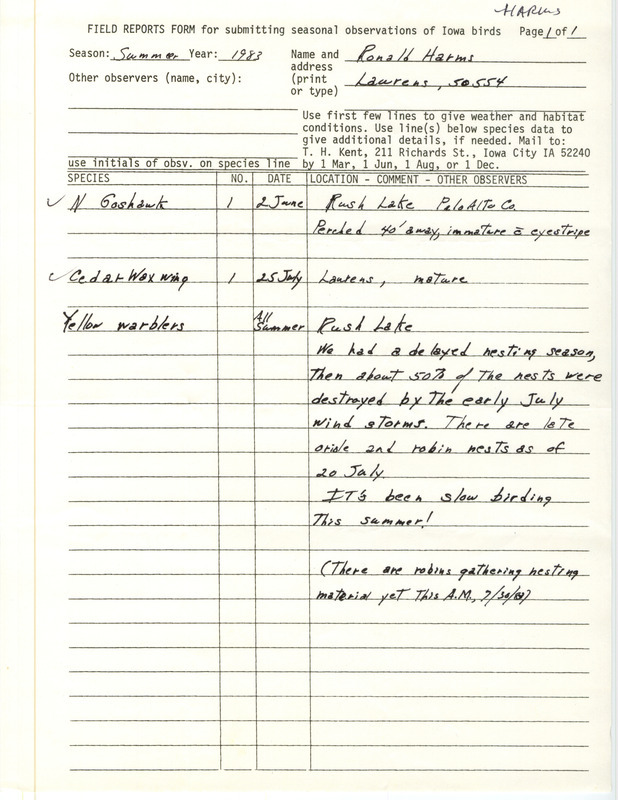 HARMS
FIELD REPORTS FORM for submitting seasonal observations of Iowa birds Page 1 of 1
Season: Summer Year: 1983 Name and address (print or type) Ronald Harms
Laurens, 50554
Other observers (name, city):
Use first few lines to give weather and habitat
conditions. Use line(s) below species data to
give additional details, if needed. Mail to:
T. H. Kent, 211 Richards St., Iowa City IA 52240
use initials of obsv. on species line by 1 Mar, 1 Jun, 1 Aug, or 1 Dec.
SPECIES NO. DATE LOCATION - COMMENT - OTHER OBSERVERS
✓ N Goshawk 1 2 June Rush Lake Palo Alto Co.
Perched 40' away, immature c̄ eyestripe
✓ Cedar Wax wing 1 25 July Laurens, mature
Yellow warblers All Summer Rush Lake
We had a delayed nesting season,
Then about 50% of The nests were
destroyed by The early July
wind storms. There are late
oriole and robin nests as of
20 July.
IT's been slow birding
This summer!
(There are robins gathering nesting
material yet This A.M, 7/30/83)